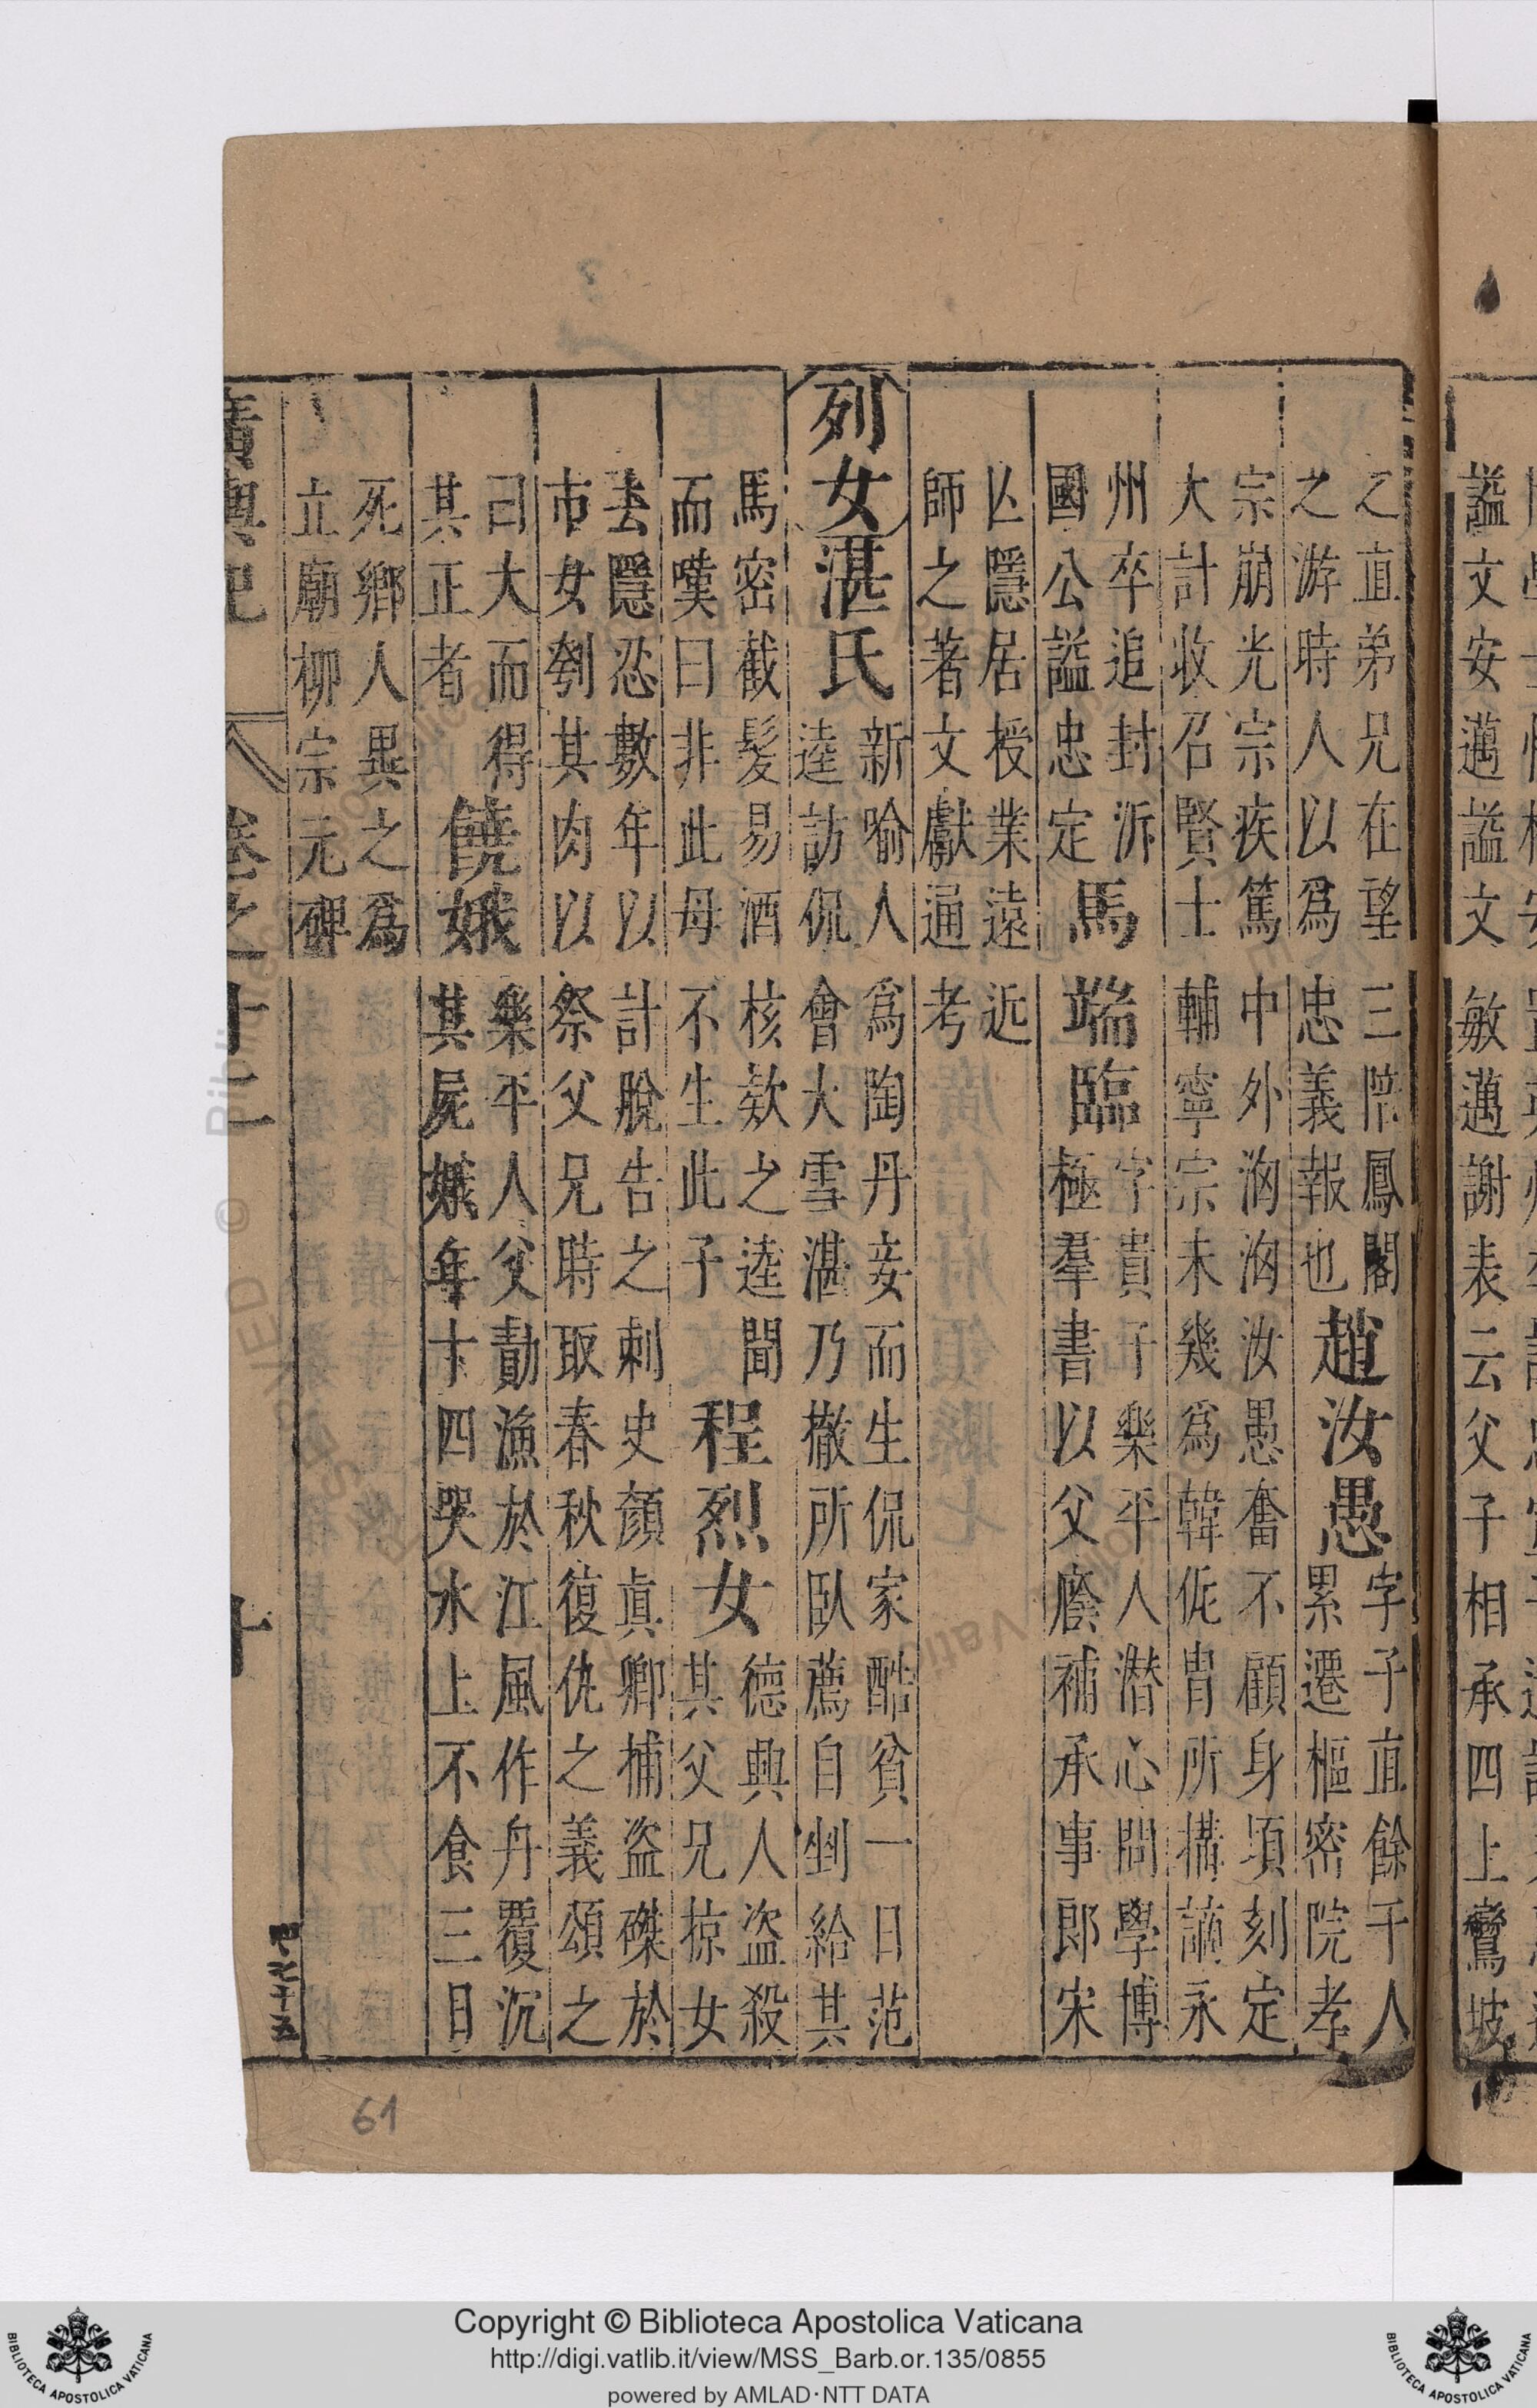 謚文安邁謚文敏邁謝表云父子相承四上鸞坡
之直弟兄在望三陪鳳閣
之游時人以爲忠義報也
趙汝愚
字子直餘干人
累遷樞密院孝
宗崩光宗疾篤中外洶洶汝愚奮不顧身頃刻定
大計收召賢士輔寧宗未幾爲韓侂冑所搆謫永
州卒追封沂
國公謚忠定
馬端臨
字貴于樂平人潜心問學博
極羣書以父廕補承事郎宋
亾隱居授業遠近
師之著文獻通考
列女
湛氏
新喻人爲陶丹妾而生侃家酷貧一日范
逵訪侃會大雪湛乃撤所臥薦自剉給其
馬密截髮易酒核欵之逵聞
而嘆曰非此母不生此子
程烈女
德興人盗殺
其父兄掠女
去隱忍數年以計脫告之刺史顏眞卿捕盗磔於
市女刳其肉以祭父兄時取春秋復仇之義頌之
曰大而得
其正者
饒娥
樂平人父勣漁於江風作舟覆沉
其屍娥年十四哭水上不食三日
死鄉人異之爲
立廟柳宗元碑
廣輿記
卷之十二
十
61
Copyright © Biblioteca Apostolica Vaticana
http://digi.vatlib.it/view/MSS_Barb.or.135/0855
powered by AMLAD·NTT DATA
BIBLIOTECA APOSTOLICA VATICANA
BIBLIOTECA APOSTOLICA VATICANA